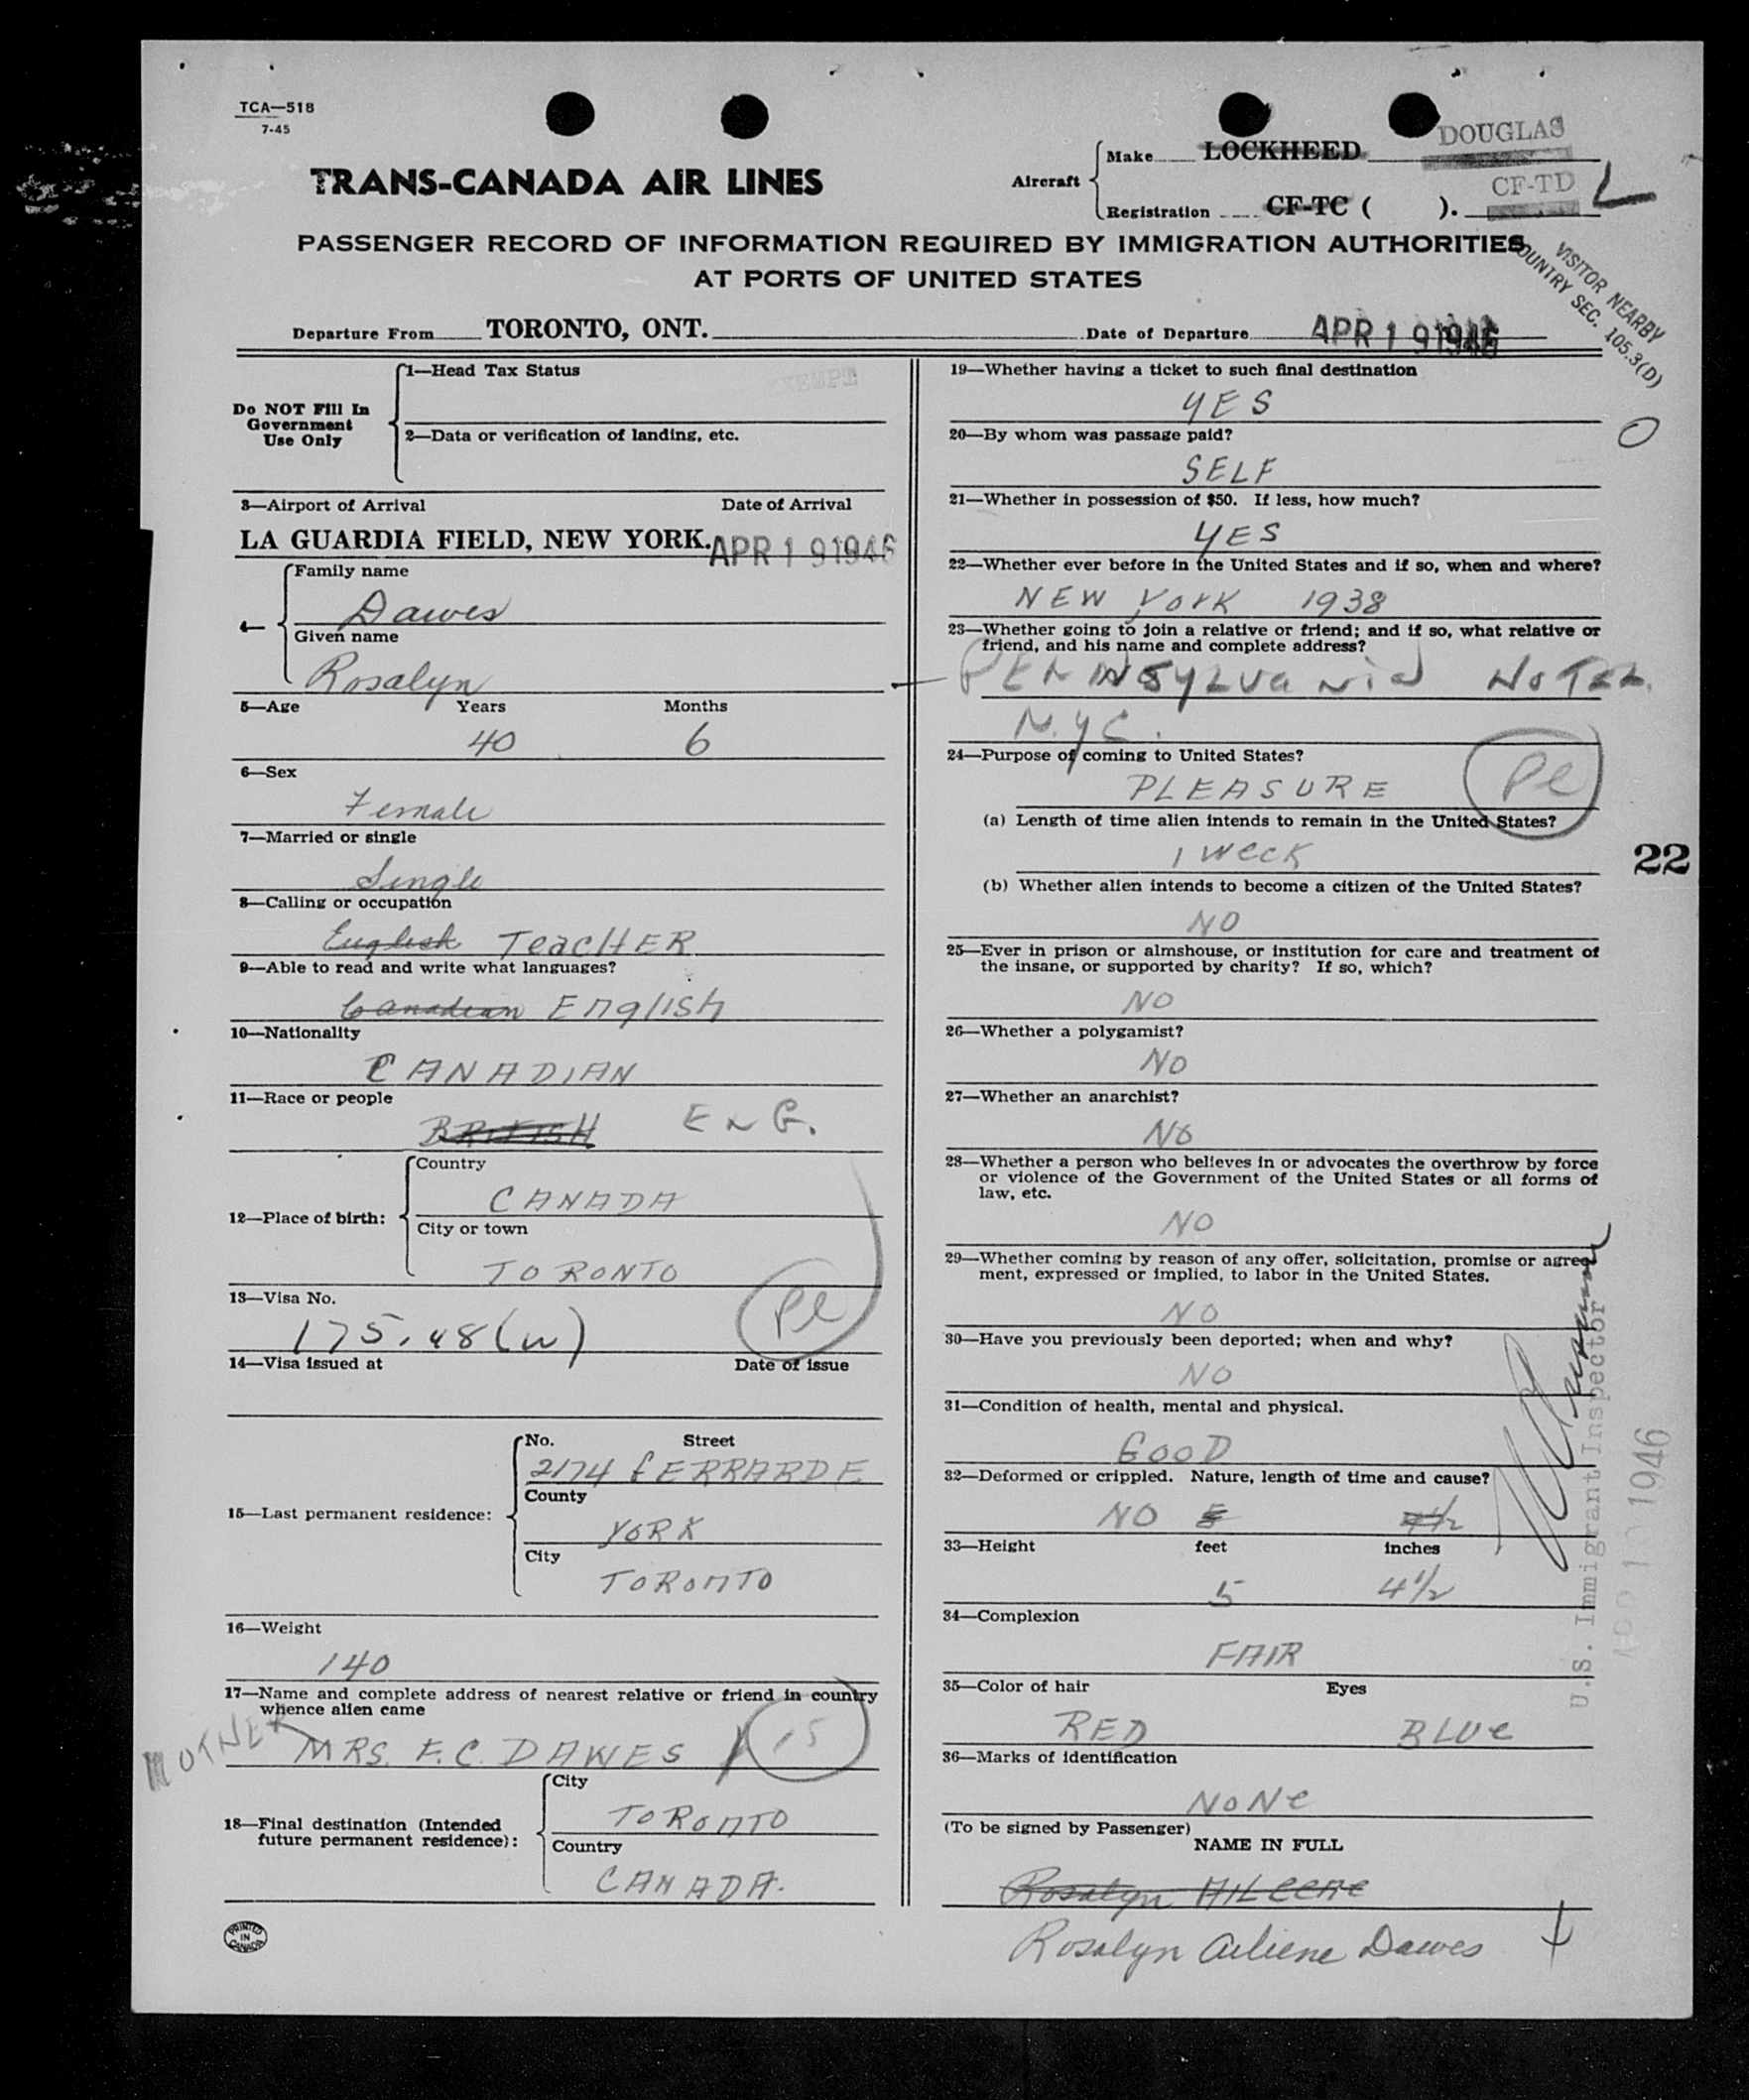 TCA—518
7-45
TRANS-CANADA AIR LINES
Aircraft
Make LOCKHEED DOUGLAS
Registration CF-TC ( ). CF-TD L
PASSENGER RECORD OF INFORMATION REQUIRED BY IMMIGRATION AUTHORITIES
AT PORTS OF UNITED STATES
VISITOR NEARBY
COUNTRY SEC. 105.3(D)
Departure From TORONTO, ONT. Date of Departure APR 19 1946
Do NOT Fill In
Government
Use Only
1—Head Tax Status
EXEMPT
2—Data or verification of landing, etc.
3—Airport of Arrival Date of Arrival
LA GUARDIA FIELD, NEW YORK. APR 19 1946
4—
Family name
Dawes
Given name
Rosalyn
5—Age Years Months
40 6
6—Sex
Female
7—Married or single
Single
8—Calling or occupation
English TeacHER
9—Able to read and write what languages?
Canadian English
10—Nationality
CANADIAN
11—Race or people
BRITISH ENG.
12—Place of birth:
Country
CANADA
City or town
TORONTO
13—Visa No.
175.48(w) Pl
14—Visa issued at Date of issue
15—Last permanent residence:
No. Street
2174 GERRARD E
County
YORK
City
TORONTO
16—Weight
140
17—Name and complete address of nearest relative or friend in country
whence alien came
MOTHER MRS. F.C. DAWES 15
18—Final destination (Intended
future permanent residence):
City
TORONTO
Country
CANADA.
PRINTED
IN
CANADA
19—Whether having a ticket to such final destination
YES
20—By whom was passage paid?
SELF
21—Whether in possession of $50. If less, how much?
YES
22—Whether ever before in the United States and if so, when and where?
NEW YORK 1938
23—Whether going to join a relative or friend; and if so, what relative or
friend, and his name and complete address?
PENNSYLVANIA HOTEL
N.Y.C.
24—Purpose of coming to United States?
PLEASURE Pl
(a) Length of time alien intends to remain in the United States?
1 Week
22
(b) Whether alien intends to become a citizen of the United States?
NO
25—Ever in prison or almshouse, or institution for care and treatment of
the insane, or supported by charity? If so, which?
NO
26—Whether a polygamist?
NO
27—Whether an anarchist?
NO
28—Whether a person who believes in or advocates the overthrow by force
or violence of the Government of the United States or all forms of
law, etc.
NO
29—Whether coming by reason of any offer, solicitation, promise or agree-
ment, expressed or implied, to labor in the United States.
NO
30—Have you previously been deported; when and why?
NO
31—Condition of health, mental and physical.
GOOD
32—Deformed or crippled. Nature, length of time and cause?
NO 5 4½
33—Height feet inches
5 4½
34—Complexion
FAIR
35—Color of hair Eyes
RED BLUE
36—Marks of identification
NONE
(To be signed by Passenger)
NAME IN FULL
Rosalyn
Rosalyn Arliene Dawes
U.S. Immigrant Inspector
APR 19 1946